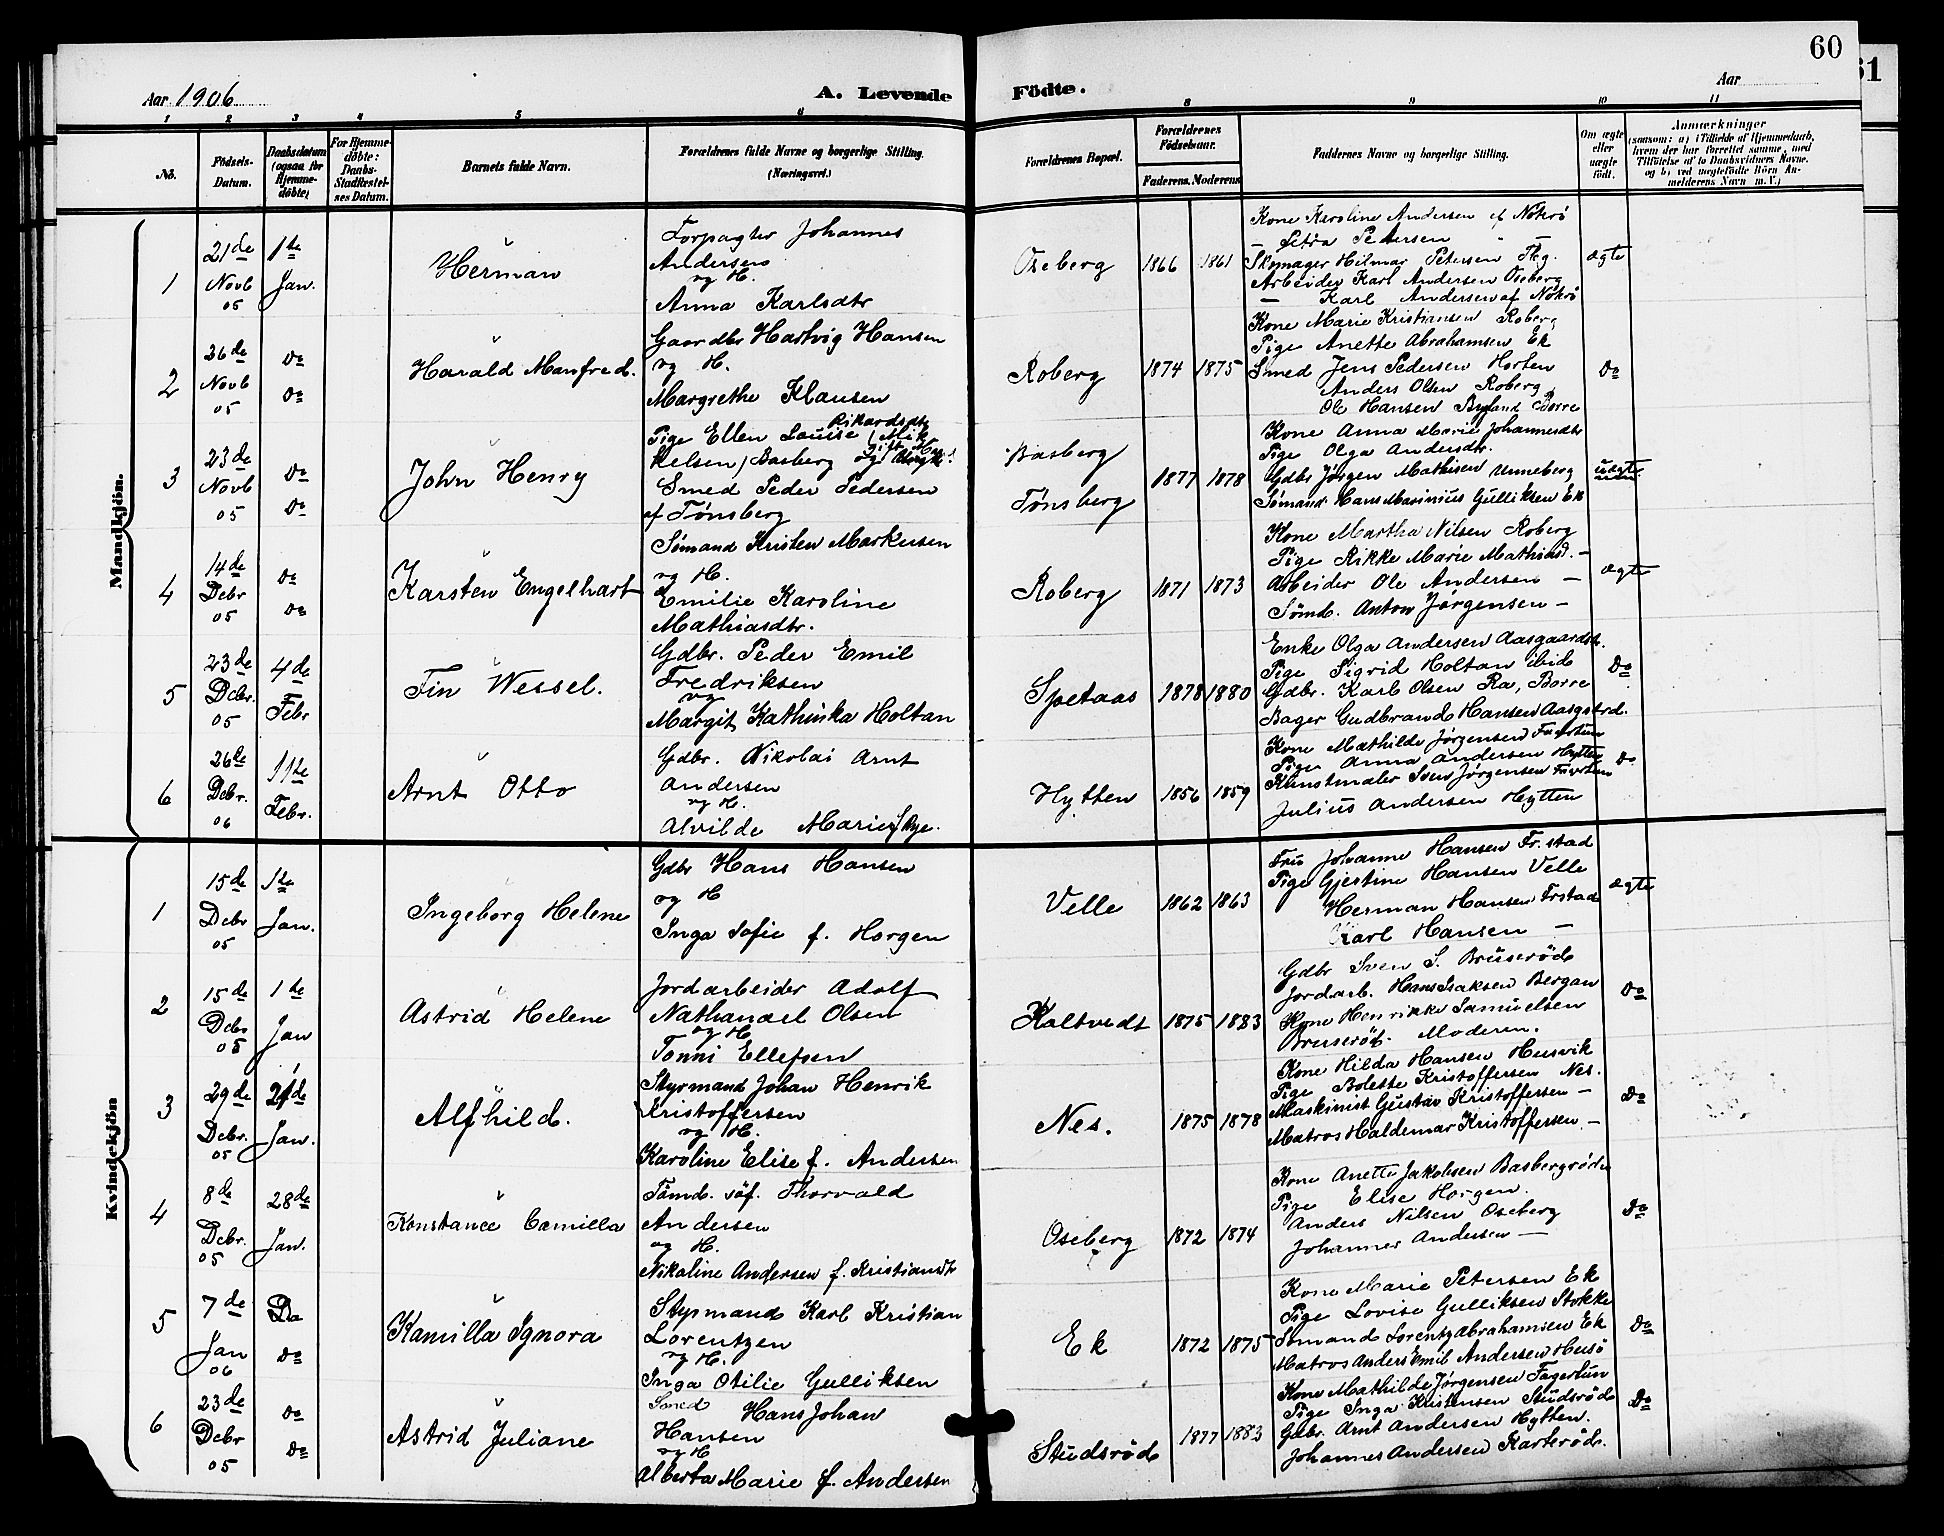 60
61
Aar 1906
A. Levende
Födte.
Aar
1 2 3 4 5 6 8 9 10 11
No.
Födsels-
Datum.
Daabsdatum
(ogsaa for
Hjemme-
döbte)
For Hjemme-
döbte:
Daabs-
Stadfæstel-
ses Datum.
Barnets fulde Navn.
Forældrenes fulde Navne og borgerlige Stilling.
(Næringsvei.)
Forældrenes Bopæl.
Forældrenes
Födselsaar.
Faderens. Moderens.
Faddernes Navne og borgerlige Stilling.
Om ægte
eller
uægte
födt.
Anmærkninger
(saasom: a) i Tilfælde af Hjemmedaab,
hvem der har forrettet samme, med
Tilföielse af to Daabsvidners Navne.
og b) ved uægtefödte Börn An-
melderens Navn m. V.)
Mandkjön.
1
21de
Novb
05
1te
Jan.
Herman
Forpagter Johannes
Andersen
og H.
Anna Karlsdtr
Oseberg
1866
1861
Kone Karoline Andersen af Nøtrø
— Petra Petersen —
Skomager Hilmar Petersen Tbg.
Arbeider Karl Andersen Oseberg
— Karl Andersen af Nøtrø
ægte
2
26de
Novb
05
Do
Do
Harald Manfred.
Gaardbr Hartvig Hansen
og H.
Margrethe Klausen
Roberg
1874
1875
Kone Marie Kristiansen Roberg
Pige Anette Abrahamsen Ek
Smed Jens Pedersen Horten
Anders Olsen Roberg
Ole Hansen Byland Borre
Do
3
23de
Novb
05
Do
Do
John Henry
Rikardsdtr
Pige Ellen Louise (Mik
kelsen) Basberg og
Smed Peder Pedersen
af Tønsberg
Basberg
Tønsberg
1877
1878
Kone Anna Marie Johannesdtr
Pige Olga Andersdtr.
Gdbr Jørgen Mathisen Unneberg
Sømand Hans Marinius Gulliksen Ek
uægte
4
14de
Debr
05
Do
Do
Karsten Engelhart
Sømand Kristen Markusen
og H.
Emilie Karoline
Mathiasdtr.
Roberg
1871
1873
Kone Martha Nilsen Roberg
Pige Rikke Marie Mathiasd. —
Arbeider Ole Andersen —
Sømd. Anton Jørgensen —
ægte
5
23de
Debr.
05
4de
Febr
Fin Wessel.
Gdbr. Peder Emil
Fredriksen
og
Margit Kathinka Holtan
Spetaas
1878
1880
Enke Olga Andersen Aasgaardstr.
Pige Sigrid Holtan ibid
Gdbr. Karl Olsen Ra, Borre
Bager Gudbrand Hansen Aasgstrd.
Do
6
26de
Debr.
06
11te
Febr.
Arnt Otto
Gdbr. Nikolai Arnt
Andersen
og H.
Alvilde Marie f Rye.
Hytten
1856
1859
Kone Mathilde Jørgensen Fagertun
Pige Anna Andersen Hytten
Kunstmaler Sven Jørgensen Fagertun
Julius Andersen Hytten
Do
Kvindekjön
1
15de
Debr
05
1te
Jan.
Ingeborg Helene
Gdbr Hans Hansen
og H
Inga Sofie f. Horgen
Velle
1862
1863
Fru Johanne Hansen Fr.stad
Pige Gjertine Hansen Velle
Herman Hansen Frstad
Karl Hansen —
ægte
2
15de
Debr
05
1te
Jan
Astrid Helene
Jordarbeider Adolf
Nathanael Olsen
og H
Tonni Ellefsen
Holtvedt
1875
1883
Gdbr Sven S. Bruserød
Jordarb. Hans Isaksen Bergan
Kone Henrikke Samuelsen
Bruserød. Moderen.
Do
3
29de
Debr.
05
21de
Jan.
Alfhild.
Styrmand Johan Henrik
Kristoffersen
og H.
Karoline Elise f. Andersen
Nes.
1875
1878
Kone Hilda Hansen Husvik
Pige Bolette Kristoffersen Nes.
Maskinist Gustav Kristoffersen —
Matros Haldemar Kristoffersen —
Do
4
8de
Debr.
05
28de
Jan.
Konstance Camilla
Tømd. søf. Thorvald
Andersen
og H.
Nikoline Andersen f. Kristiansdtr
Oseberg
1872
1874
Kone Anette Jakobsen Basbergrød
Pige Elise Horgen.
Anders Nilsen Oseberg
Johannes Andersen —
Do
5
7de
Jan
06
Do
Do
Kamilla Ignora
Styrmand Karl Kristian
Lorentzen
og H.
Inga Otilie Gulliksen
Ek
1872
1875
Kone Marie Petersen Ek
Pige Lovise Gulliksen Stokke
Sømand Lorentz Abrahamsen Ek
Matros Anders Emil Andersen Husø
Do
6
23de
Debr
05
Do
Do
Astrid Juliane
Smed Hans Johan
Hansen
og H
Alberta Marie f. Andersen
Studsrød
1877
1883
Kone Mathilde Jørgensen Fagertun
Pige Inga Kristensen Studsrød
Gdbr. Arnt Andersen Hytten.
Johannes Andersen Karterød.
Do